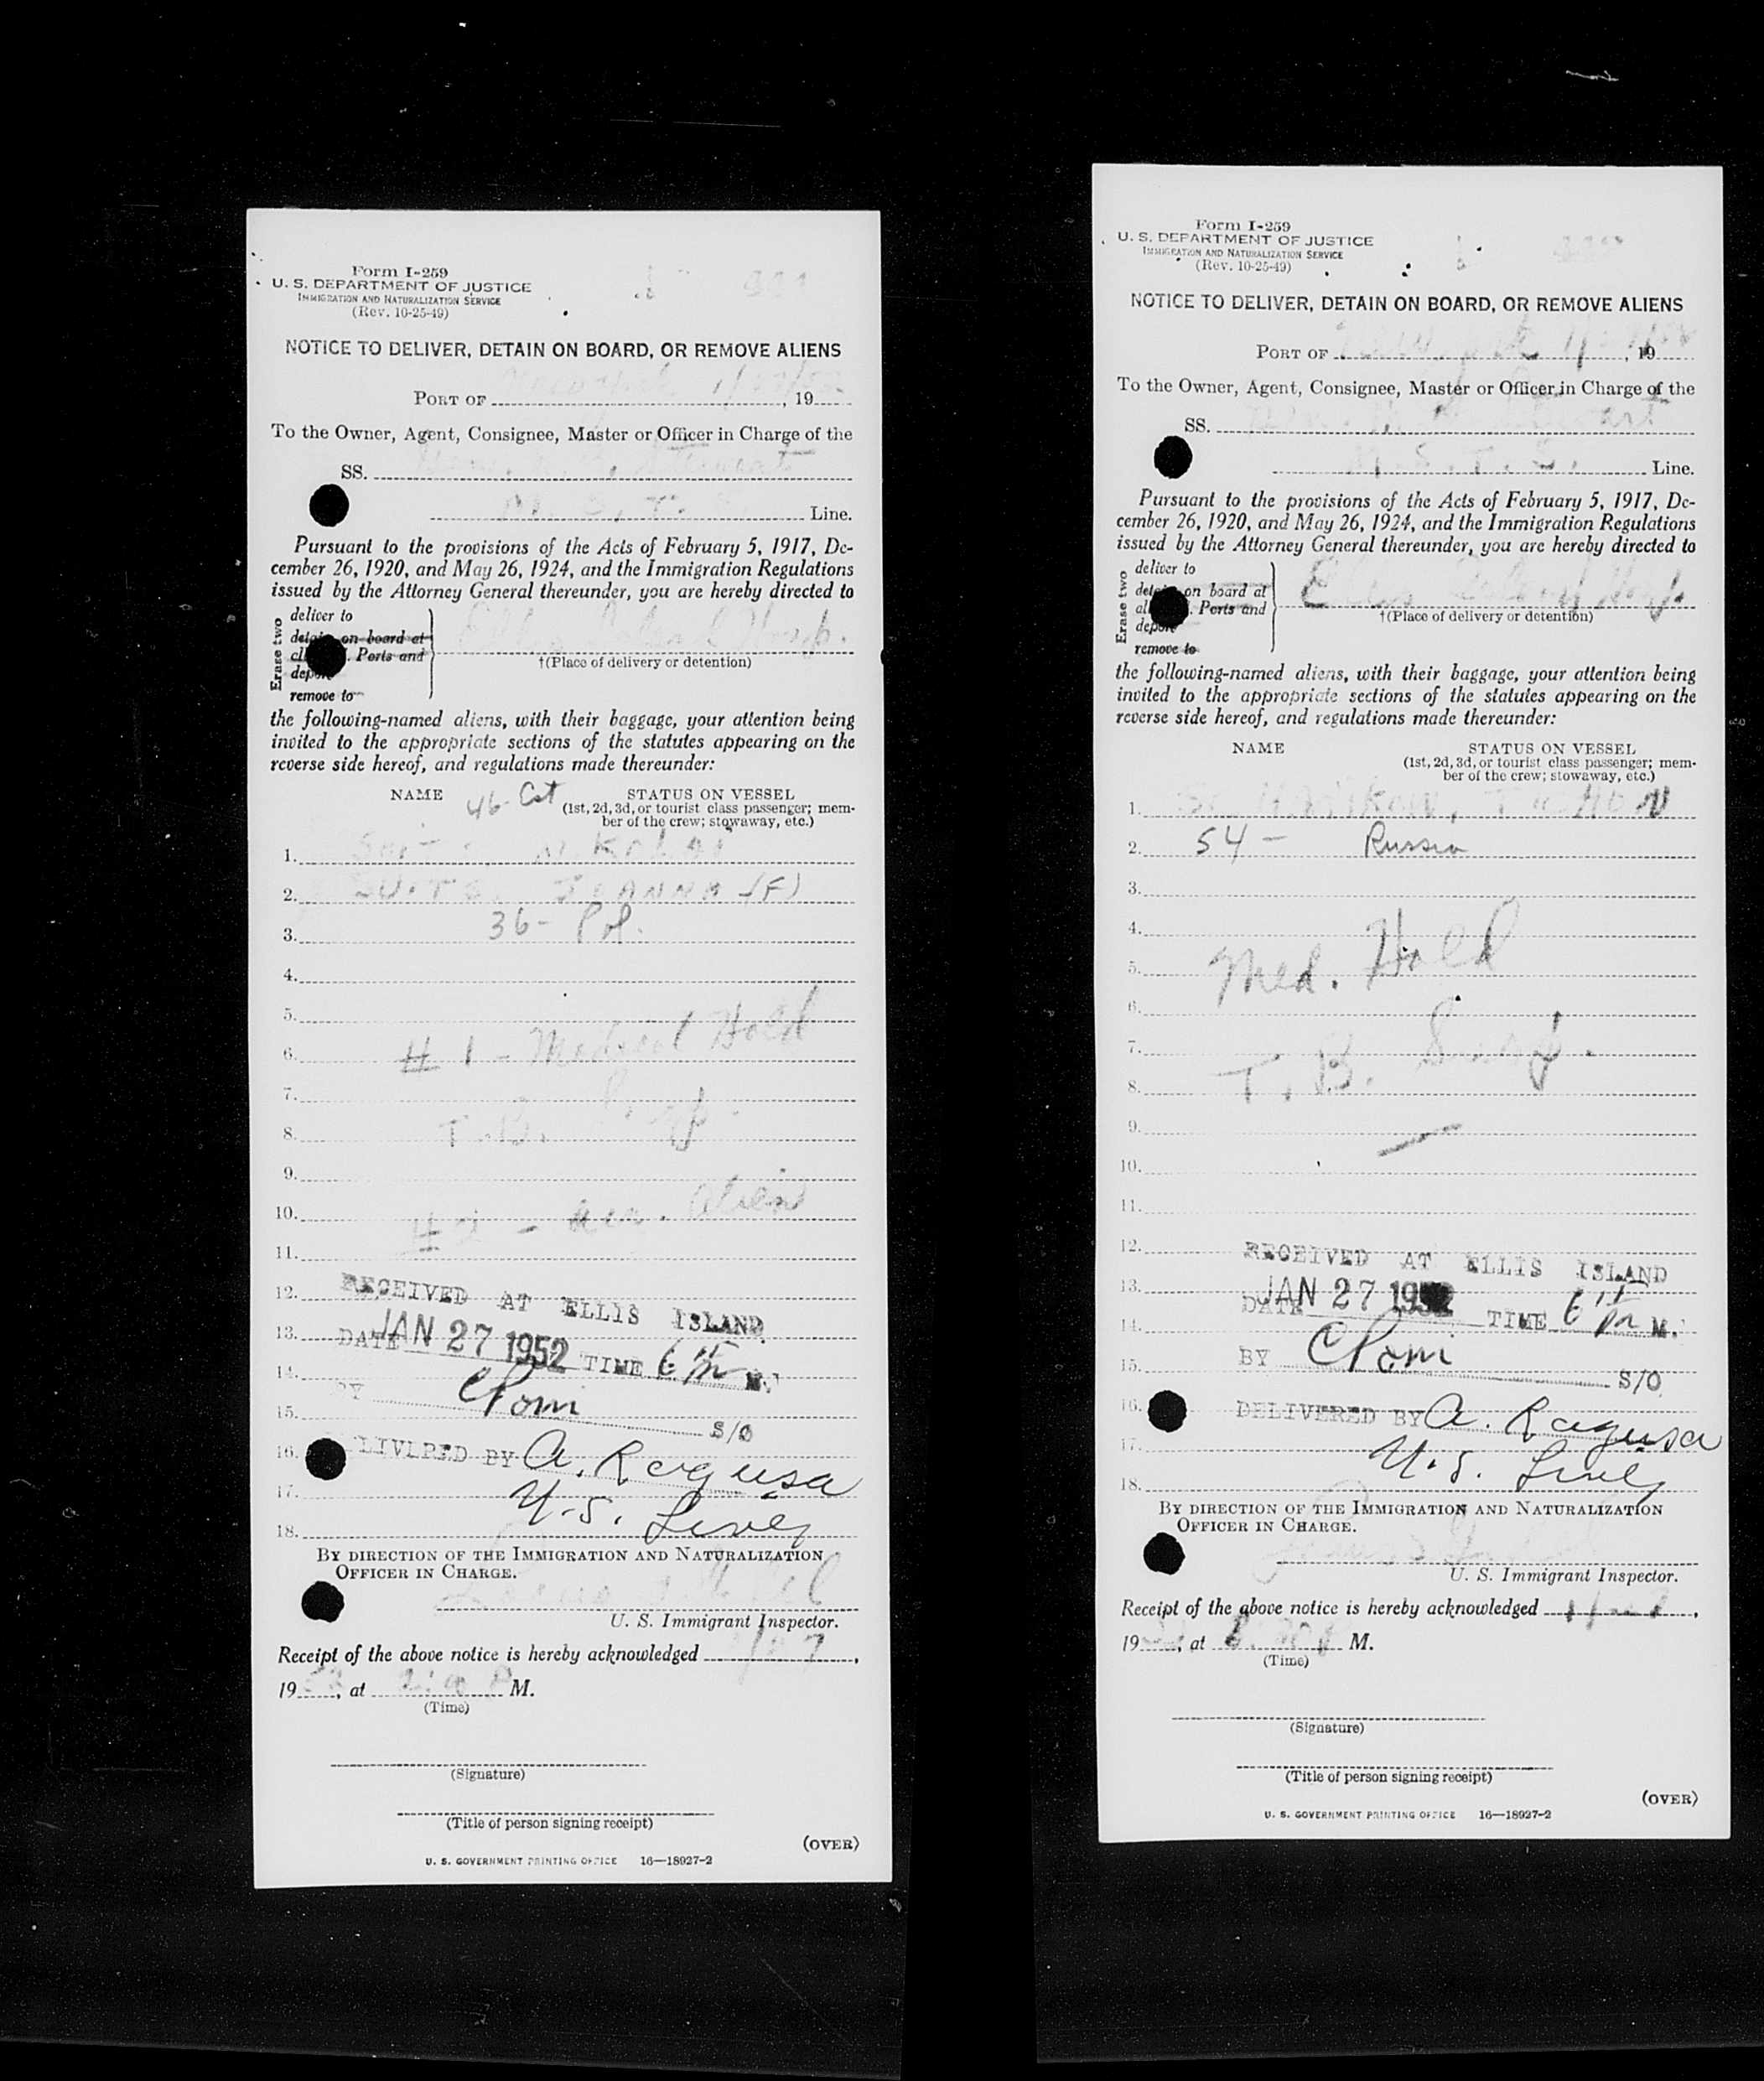 Form I-259
U. S. DEPARTMENT OF JUSTICE
IMMIGRATION AND NATURALIZATION SERVICE
(Rev. 10-25-49)
NOTICE TO DELIVER, DETAIN ON BOARD, OR REMOVE ALIENS
PORT OF New York 1/27/52, 19
To the Owner, Agent, Consignee, Master or Officer in Charge of the
SS. Stewart
M. S. T. Line.
Pursuant to the provisions of the Acts of February 5, 1917, De-
cember 26, 1920, and May 26, 1924, and the Immigration Regulations
issued by the Attorney General thereunder, you are hereby directed to
Erase two
deliver to
detain on board at
Ports and
remove to
Ellis Island Hosp.
†(Place of delivery or detention)
the following-named aliens, with their baggage, your attention being
invited to the appropriate sections of the statutes appearing on the
reverse side hereof, and regulations made thereunder:
NAME 46- STATUS ON VESSEL
(1st, 2d, 3d, or tourist class passenger; mem-
ber of the crew; stowaway, etc.)
1.
2. JOANNA (F)
3. 36- Pol.
4.
5.
6. # 1 - Medical Hold
7.
8. T. B.
9.
10. #2 - Alien
11.
12. RECEIVED AT ELLIS ISLAND
13. DATE JAN 27 1952 TIME 6 PM M.
14. BY
15. S/O
16. BY A. Ragusa
17. U.S. Lines
18.
BY DIRECTION OF THE IMMIGRATION AND NATURALIZATION
OFFICER IN CHARGE.
U. S. Immigrant Inspector.
Receipt of the above notice is hereby acknowledged 1/27,
19 52, at P M.
(Time)
(Signature)
(Title of person signing receipt)
(OVER)
U. S. GOVERNMENT PRINTING OFFICE 16—18927-2
Form I-259
U. S. DEPARTMENT OF JUSTICE
IMMIGRATION AND NATURALIZATION SERVICE
(Rev. 10-25-49)
NOTICE TO DELIVER, DETAIN ON BOARD, OR REMOVE ALIENS
PORT OF New York, 19
To the Owner, Agent, Consignee, Master or Officer in Charge of the
SS. Stewart
M. S. T. S. Line.
Pursuant to the provisions of the Acts of February 5, 1917, De-
cember 26, 1920, and May 26, 1924, and the Immigration Regulations
issued by the Attorney General thereunder, you are hereby directed to
Erase two
deliver to
on board at
Ports and
remove to
Ellis Island Hosp.
†(Place of delivery or detention)
the following-named aliens, with their baggage, your attention being
invited to the appropriate sections of the statutes appearing on the
reverse side hereof, and regulations made thereunder:
NAME STATUS ON VESSEL
(1st, 2d, 3d, or tourist class passenger; mem-
ber of the crew; stowaway, etc.)
1.
2. 54 - Russia
3.
4.
5. Med. Hold
6.
7.
8. T. B. Susp.
9.
10.
11.
12. RECEIVED AT ELLIS ISLAND
13. DATE JAN 27 1952 TIME 6 PM M.
14.
15. BY S/O
16. DELIVERED BY A. Ragusa
17. U.S. Lines
18.
BY DIRECTION OF THE IMMIGRATION AND NATURALIZATION
OFFICER IN CHARGE.
U. S. Immigrant Inspector.
Receipt of the above notice is hereby acknowledged 1/27,
19, at M.
(Time)
(Signature)
(Title of person signing receipt)
(OVER)
U. S. GOVERNMENT PRINTING OFFICE 16—18927-2